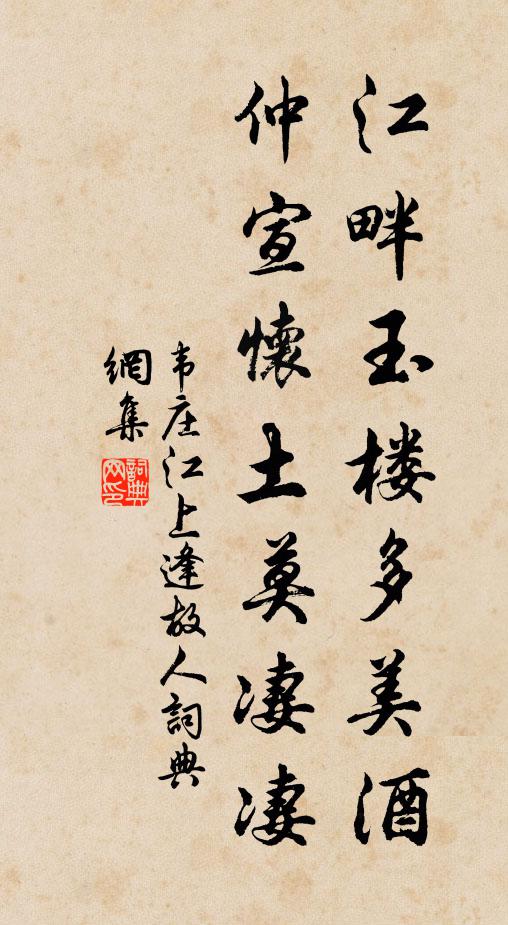 江畔玉楼多美酒
仲宣懷土莫凄凄
韦庄江上逢故人詞典
網集
詞典
网印